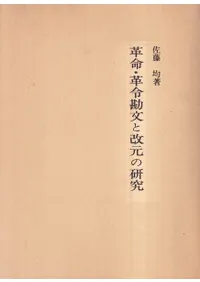 佐藤 均著
革命・革令勘文と改元の研究